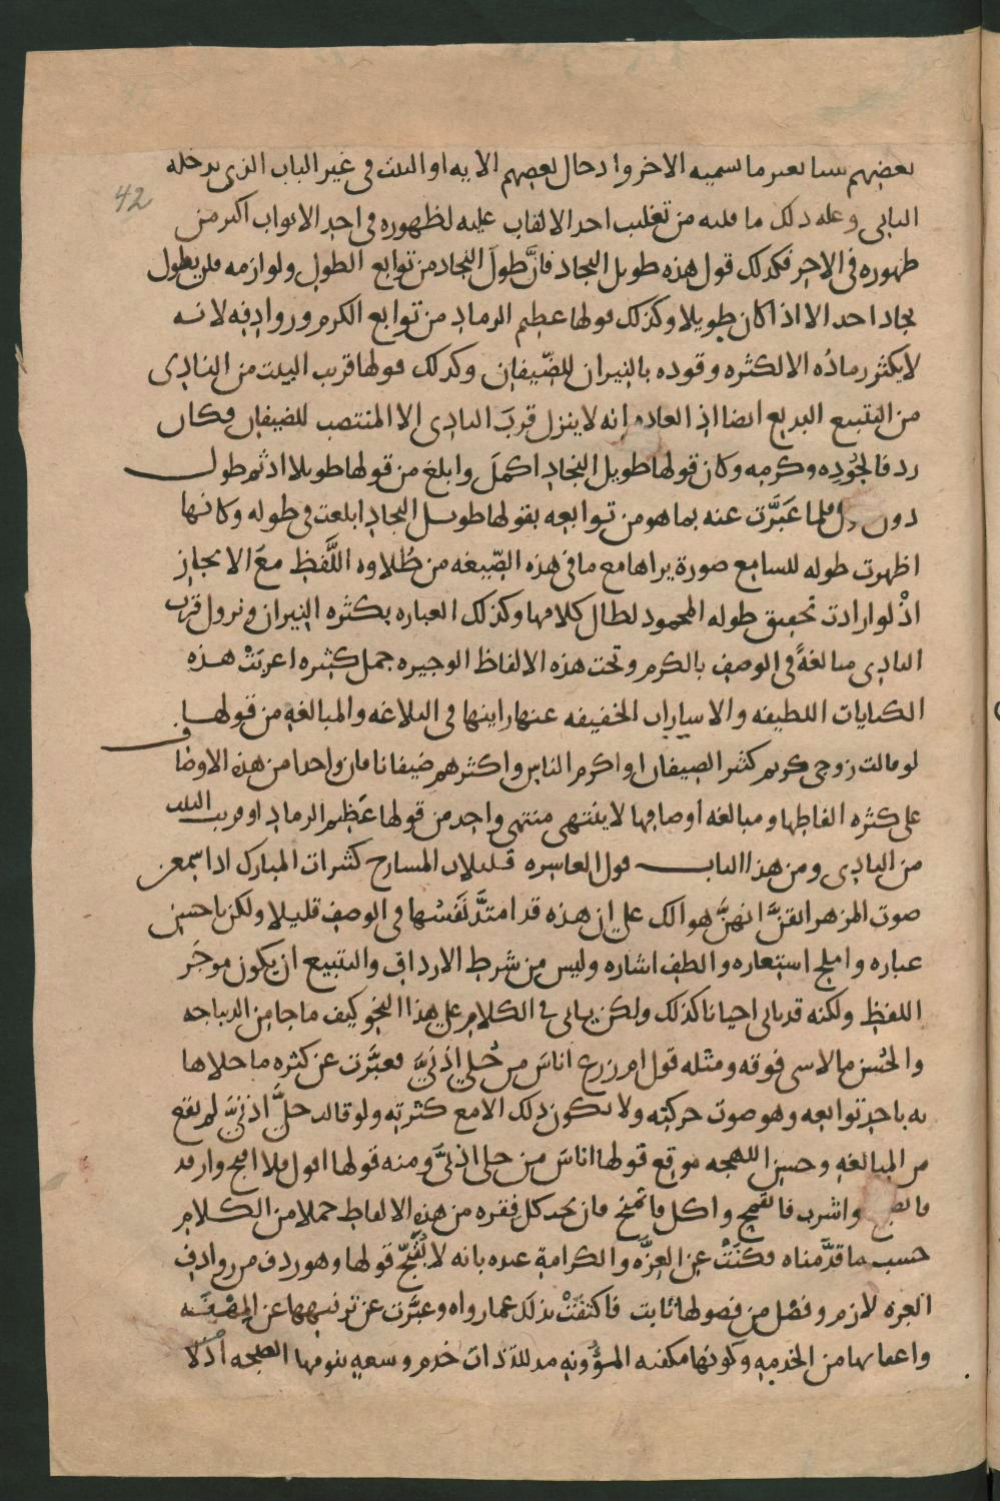 بعضهم شيا بغير ما يسميه الاخر وادخال بعضهم الايه او البيت في غير الباب الذي يدخله
42
الثاني وعله ذلك ما قلته من تغليب احد الالقاب عليه لظهوره في احد الابواب اكثر من
ظهوره في الاخر فكذلك قول هذه طويل النجاد فانَّ طولَ النجاد من توابع الطول ولوازمه فلن يطول
نجاد احد الا اذا كان طويلا وكذلك قولها عظيم الرماد من توابع الكرم وروادفه لانه
لا يكثر رمادُه الا لكثره وقوده بالنيران للضّيفان وكذلك قولها قريب البيت من النادي
من التتبيع البديع ايضا اذ العاده انه لا ينزل قربَ النادي الا المنتصب للضيفان فكان
ردفا لجُودِه وكرمه وكان قولها طويل النجاد اكملَ وابلغ من قولها طويلا اذ ثم طول
دون طول فلما عَبَّرَت عنه بما هو من توابعه بقولها طويل النجاد ابلغت في طوله وكانها
اظهرت طوله للسامع صورة يراها مع ما في هذه الصّيغه من طُلاوه اللَّفظ معَ الايجاز
اذْ لو ارادت تحقيق طوله المحمود لطال كلامها وكذلك العباره بكثره النيران ونزول قرب
النادي مبالغةً في الوصف بالكرم وتحت هذه الالفاظ الوجيزه جمل كثيره اعربَتْ هذه
الكنايات اللطيفه والاشارات الخفيفه عنها واينها في البلاغه والمبالغه من قولها
لو قالت زوجي كريم كثير الضيفان او اكرم الناس واكثرهم ضيفانا فان واحدا من هذه الاوصاف
على كثره الفاظها ومبالغه اوصافها لا ينتهي منتهى واحد من قولها عَظيم الرماد او قريب البيت
من النادي ومن هذا الباب قول العاشره قليلات المسارح كثيرات المبارك اذا سمعن
صوت المزهر ايقنَّ انهنَّ هوالك على ان هذه قد امتدَّ نَفَسُها في الوصف قليلا ولكن باحسن
عباره واملح استعاره والطف اشاره وليس من شرط الارداف والتتبيع ان يكون موجَز
اللفظ ولكنه قد ياتي احيانا كذلك ولكن ياتي في الكلام على هذا النحو كيف ما جا من الديباجه
والحُسن ما لا شي فوقه ومثله قول ام زرع اناسَ من حُلي اذنيَّ فعبَّرت عن كثره ما حلاها
به باحد توابعه وهو صوت حركته ولا يكون ذلك الا مع كثرته ولو قالت حلَّى اذنيَّ لم يقع
من المبالغه وحسن اللهجه موقع قولها اناسَ من حلي اذنيَّ ومنه قولها اقول فلا اقبح وارقد
فاتصبح واشرب فاتقمح واكل فاتمنح فان تحت كل فقره من هذه الالفاظ جملا من الكلام
حسب ما قدَّمناه فكنَتْ عن العزَّه والكرامة عنده بانه لا يُقبّح قولها وهو ردف من روادف
العزه لازم وفصْل من فصولها ثابت فاكتفَتْ بذلك عما رواه وعبَّرت عن ترفيهها عن المهْنَه
واعفايها من الخدمه وكونها مكفيه المؤونه مدللة ذات خدم وسعه بنومها الصبحه اذ لا